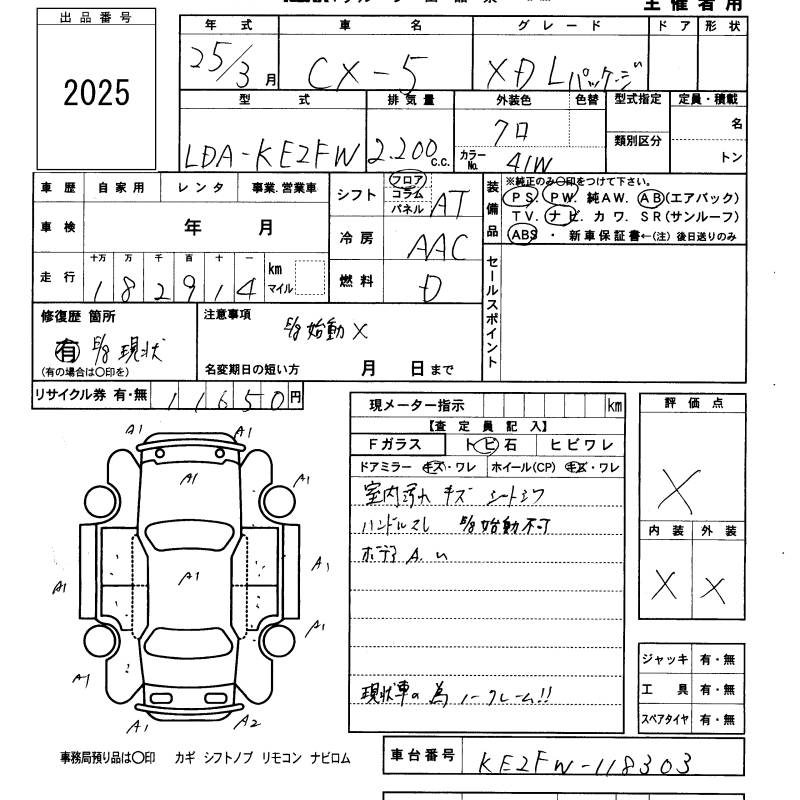 主催者用
出品番号
2025
年式 車名 グレード ドア 形状
25/3月 CX-5 XDLパッケージ
型式 排気量 外装色 色替 型式指定 定員・積載
LDA-KE2FW 2.200c.c. クロ 類別区分 名
カラーNo. 41W トン
車歴 自家用 レンタ 事業.営業車
シフト フロア コラム パネル AT
装備品 ※純正のみ○印をつけて下さい。
PS. PW. 純AW. AB(エアバック)
TV. ナビ. カワ. SR(サンルーフ)
ABS ・ 新車保証書←(注)後日送りのみ
車検 年 月
冷房 AAC
走行 十万 万 千 百 十 一 km マイル
182914
燃料 D
セールスポイント
修復歴 箇所
有 E/g 現状
(有の場合は○印を)
注意事項
E/g始動×
名変期日の短い方 月 日まで
リサイクル券 有・無 11650円
現メーター指示 km
【査定員記入】
Fガラス トビ石 ヒビワレ
ドアミラー キズ・ワレ ホイール(CP) キズ・ワレ
室内汚れ キズ シートシワ
ハンドルスレ E/g始動不可
ボデーA.U
現状車の為ノークレーム!!
評価点
X
内装 外装
X X
ジャッキ 有・無
工具 有・無
スペアタイヤ 有・無
A1 A1
A1
A1 A1 A1
A1
A1
A1 A2
事務局預り品は○印 カギ シフトノブ リモコン ナビロム
車台番号 KE2FW-118303